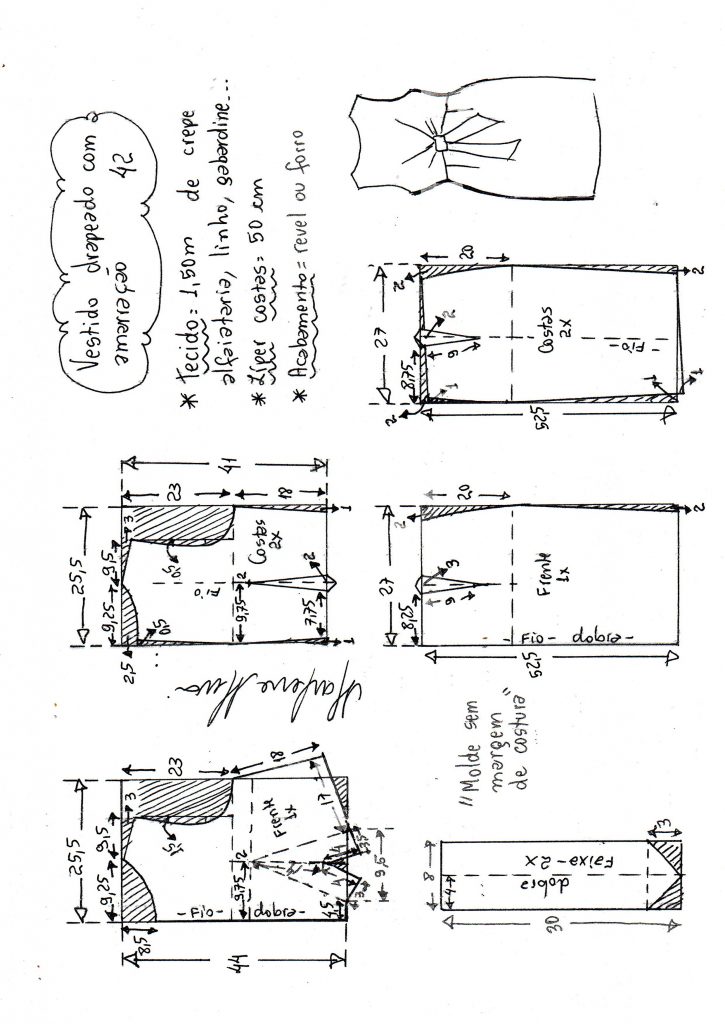 Vestido drapeado com
amarração 42
* Tecido = 1,50m de crepe
alfaiataria, linho, gabardine...
* Zíper costas = 50 cm
* Acabamento = revel ou forro
25,5
9,25
9,5
3
8,5
1,5
23
18
44
9,75
2
Frente
1x
- Fio - dobra -
17
9,5
25,5
9,25
9,5
3
2,5
0,5
23
18
41
Costas
2x
Fio
9,75
2
7,75
2
1
1
Marlene Mukai
27
8,25
9
3
2
20
Frente
1x
- Fio - dobra -
52,5
2
27
8,75
9
2
2
2
20
Costas
2x
- Fio -
52,5
1
1
1
2
"Molde sem
margem
de costura"
8
4
dobra
Faixa - 2x
30
3